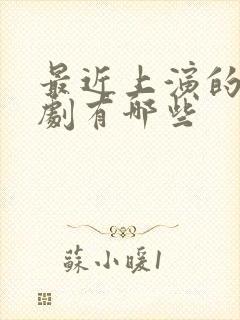 最近上演的
劇有哪些
蘇小暖1